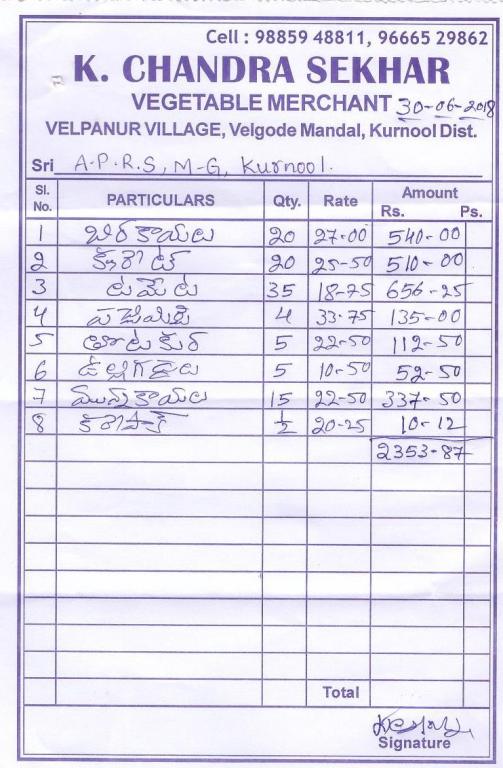 Cell : 98859 48811, 96665 29862
K. CHANDRA SEKHAR
VEGETABLE MERCHANT 30-06-2018
VELPANUR VILLAGE, Velgode Mandal, Kurnool Dist.
Sri A.P.R.S, M-G, Kurnool.
Sl. No. PARTICULARS Qty. Rate Amount Rs. Ps.
1 బీరకాయలు 20 27-00 540-00
2 క్యారెట్ 20 25-50 510-00
3 టమేట 35 18-75 656-25
4 పచ్చిమిర్చి 4 33.75 135-00
5 తోటకూర 5 22-50 112-50
6 ఉల్లిగడ్డలు 5 10-50 52-50
7 మునగకాయలు 15 22-50 337-50
8 కరేపాక్ ½ 20-25 10-12
2353-87
Total
Signature